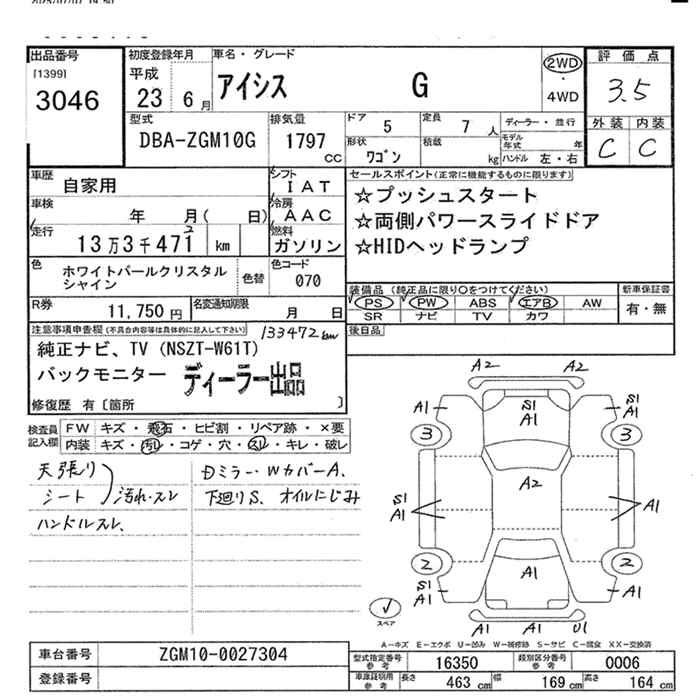 出品番号
[1399]
3046
初度登録年月
平成
23 6 月
車名・グレード
アイシス G
2WD
・
4WD
評価点
3.5
外装 内装
C C
型式
DBA-ZGM10G
排気量
1797
CC
ドア 5
定員 7 人
形状 ワゴン
積載 kg
ディーラー・並行
モデル年式 年
ハンドル 左・右
車歴 自家用
シフト IAT
車検 年 月( 日)
冷房 AAC
走行 13万3千471 km
2
燃料 ガソリン
色 ホワイトパールクリスタルシャイン
色替
色コード 070
R券 11,750 円
名変通知期限 月 日
セールスポイント(正常に機能するものに限ります)
☆プッシュスタート
☆両側パワースライドドア
☆HIDヘッドランプ
装備品 (純正品に限り○をつけてください)
PS PW ABS エアB AW
SR ナビ TV カワ
新車保証書
有・無
後日品
注意事項申告欄(不具合内容等は具体的に記入して下さい)
133472km
純正ナビ、TV (NSZT-W61T)
バックモニター ディーラー出品
修復歴 有〔箇所 〕
検査員記入欄
FW キズ・飛石・ヒビ割・リペア跡・×要
内装 キズ・汚れ・コゲ・穴・スレ・キレ・破レ
天張り
シート 汚れ・スレ
ハンドルスレ、
Dミラー・WカバーA、
下廻りS、オイルにじみ
A2 A2
A1 S1 A1 S1 A1
3 3
A2
S1 A1 A1
2 2
S1 A1 A1 A1
A1 A1 U1
スペア
A－キズ E－エクボ U－凹み W－補修跡 S－サビ C－腐食 XX－交換済
車台番号 ZGM10-0027304
登録番号
型式指定番号 参考 16350
類別区分番号 参考 0006
車庫証明用 参考 長さ 463 cm 幅 169 cm 高さ 164 cm